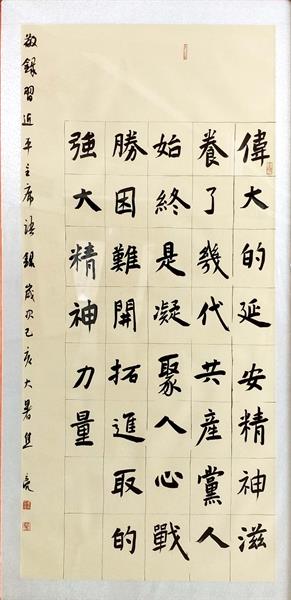 偉大的延安精神滋
養了幾代共產黨人
始終是凝聚人心戰
勝困難開拓進取的
強大精神力量
敬錄習近平主席語錄歲次己亥大暑焦亮